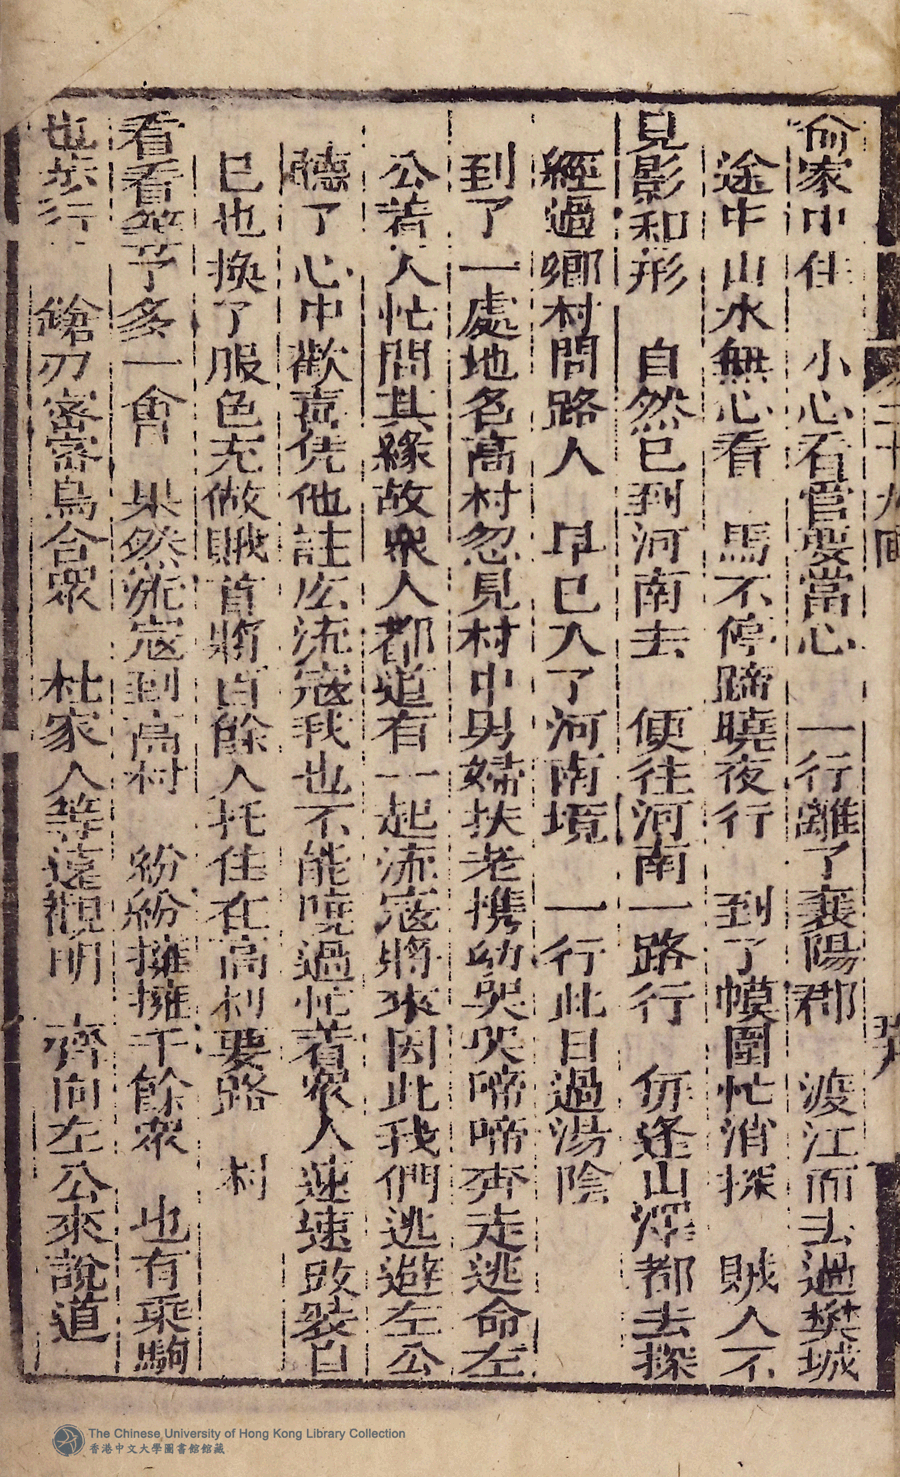 俞家中住　小心看當要當心　一行離了襄陽郡　渡江而去過樊城
途中山水無心看　馬不停蹄曉夜行　到了幙圍忙消探　賊人不
見影和形　自然已到河南去　便往河南一路行　毋逢山澤都去探
經過鄉村問路人　早已入了河南境　一行此日過湯陰
到了一處地名高村忽見村中男婦扶老携幼哭哭啼啼齊走逃命左
公着人忙問其緣故衆人都道有一起流寇將來因此我們逃避左公
聽了心中歡喜凭他註庅流寇我也不能曉過忙着衆人速速改裝自
已也換了服色充做賊首將百餘人托住在高村要路　村
看看等了多一會　果然流寇到高村　紛紛擁擁千餘衆　也有乘駒
也步行　鎗刃密密烏合衆　杜家人等遠觀明　齊向左公來說道
二十九回
The Chinese University of Hong Kong Library Collection
香港中文大學圖書館館藏